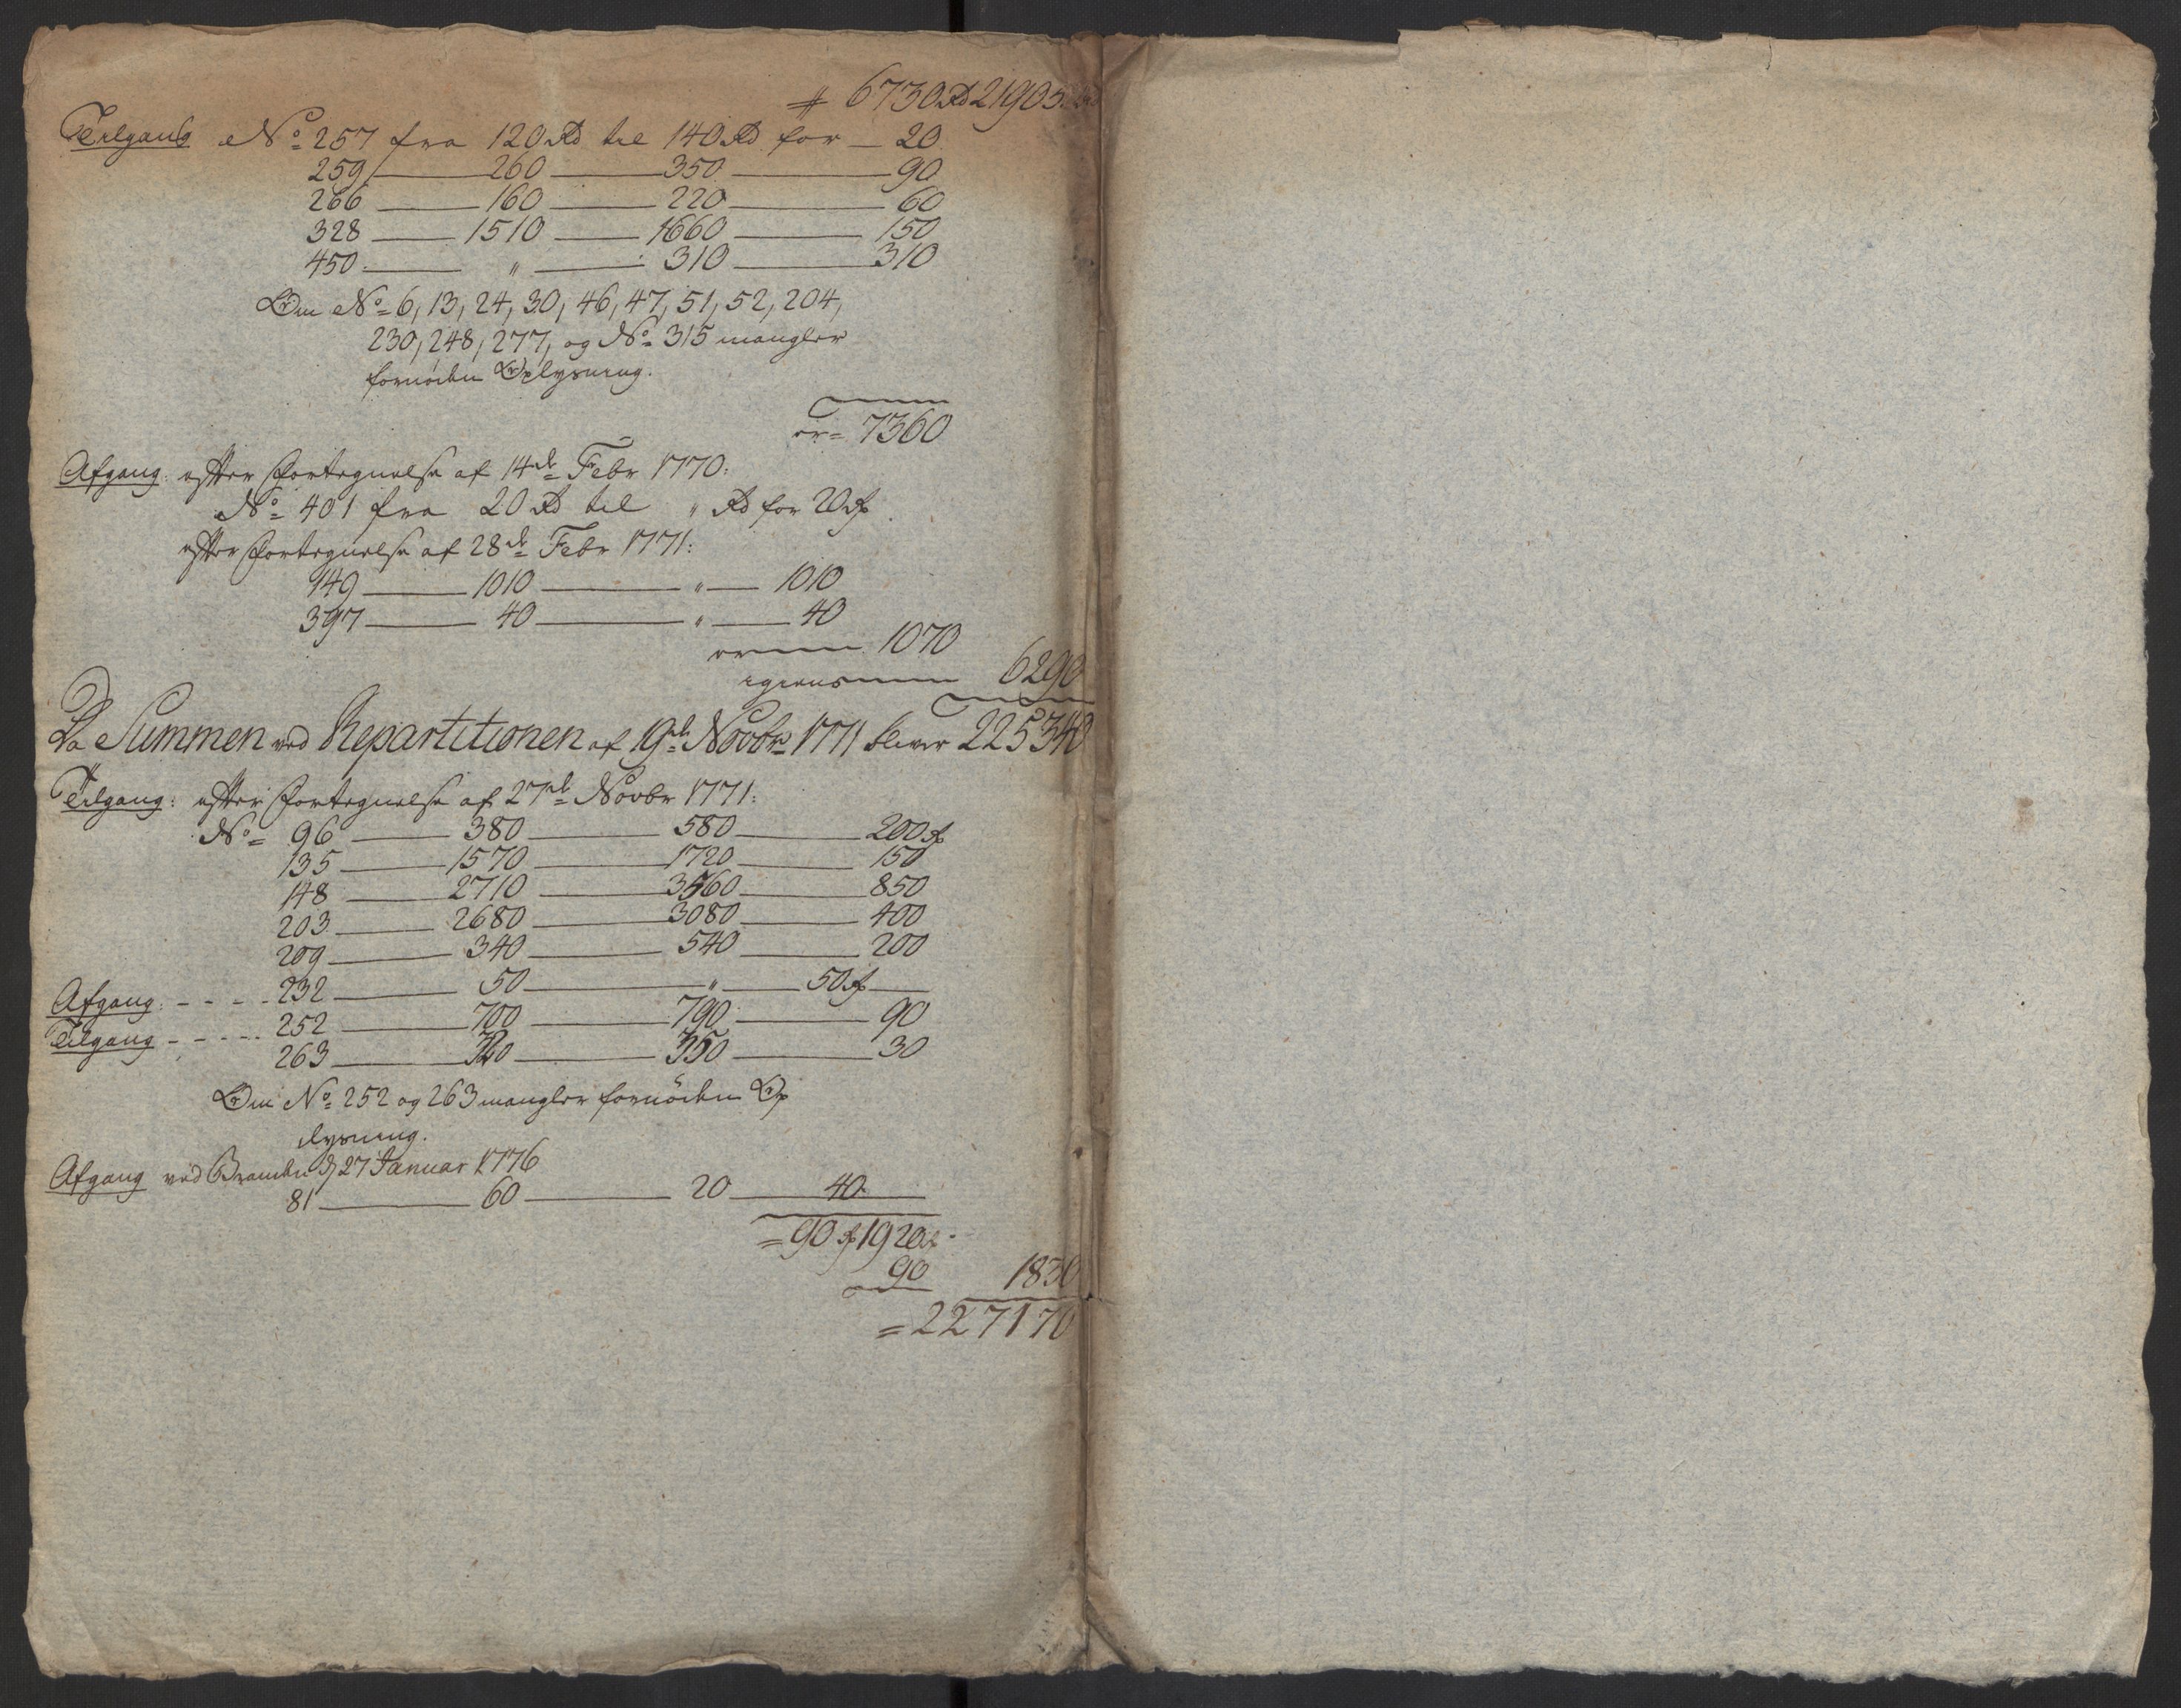 ⹀ 6730 Rd 21905
Tilgang No 257 fra 120 Rd til 140 Rd for — 20
259 — 260 — 350 — 90
266 — 160 — 220 — 60
328 — 1510 — 1660 — 150
450 — " — 310 — 310
Om No 6, 13, 24, 30, 46, 47, 51, 52, 204,
230, 248, 277, og No 315 mangler
fornöden Oplysning.
er = 7360
Afgang: efter Fortegnelse af 14de Febr 1770:
No 401 fra 20 Rd til " Rd for 20 rd
efter Fortegnelse af 28de Febr 1771:
149 — 1010 — " — 1010
397 — 40 — " — 40
1070
6290
Da Summen ved Repartitionen af 19de Novbr 1771 bliver 225340
Tilgang: efter Fortegnelse af 27de Novbr 1771:
No 96 — 380 — 580 — 200 rd
135 — 1570 — 1720 — 150
148 — 2710 — 3560 — 850
203 — 2680 — 3080 — 400
209 — 340 — 540 — 200
Afgang: - - - - 232 — 50 — " — 50 rd —
Tilgang - - - - - 252 — 700 — 790 — 90
263 — 320 — 350 — 30
Om No 252 og 263 mangler fornöden Op
lysning.
Afgang ved Branden d 27 Januar 1776
81 — 60 — 20 — 40
= 90 rd 1920 rd
90 1830
= 227170